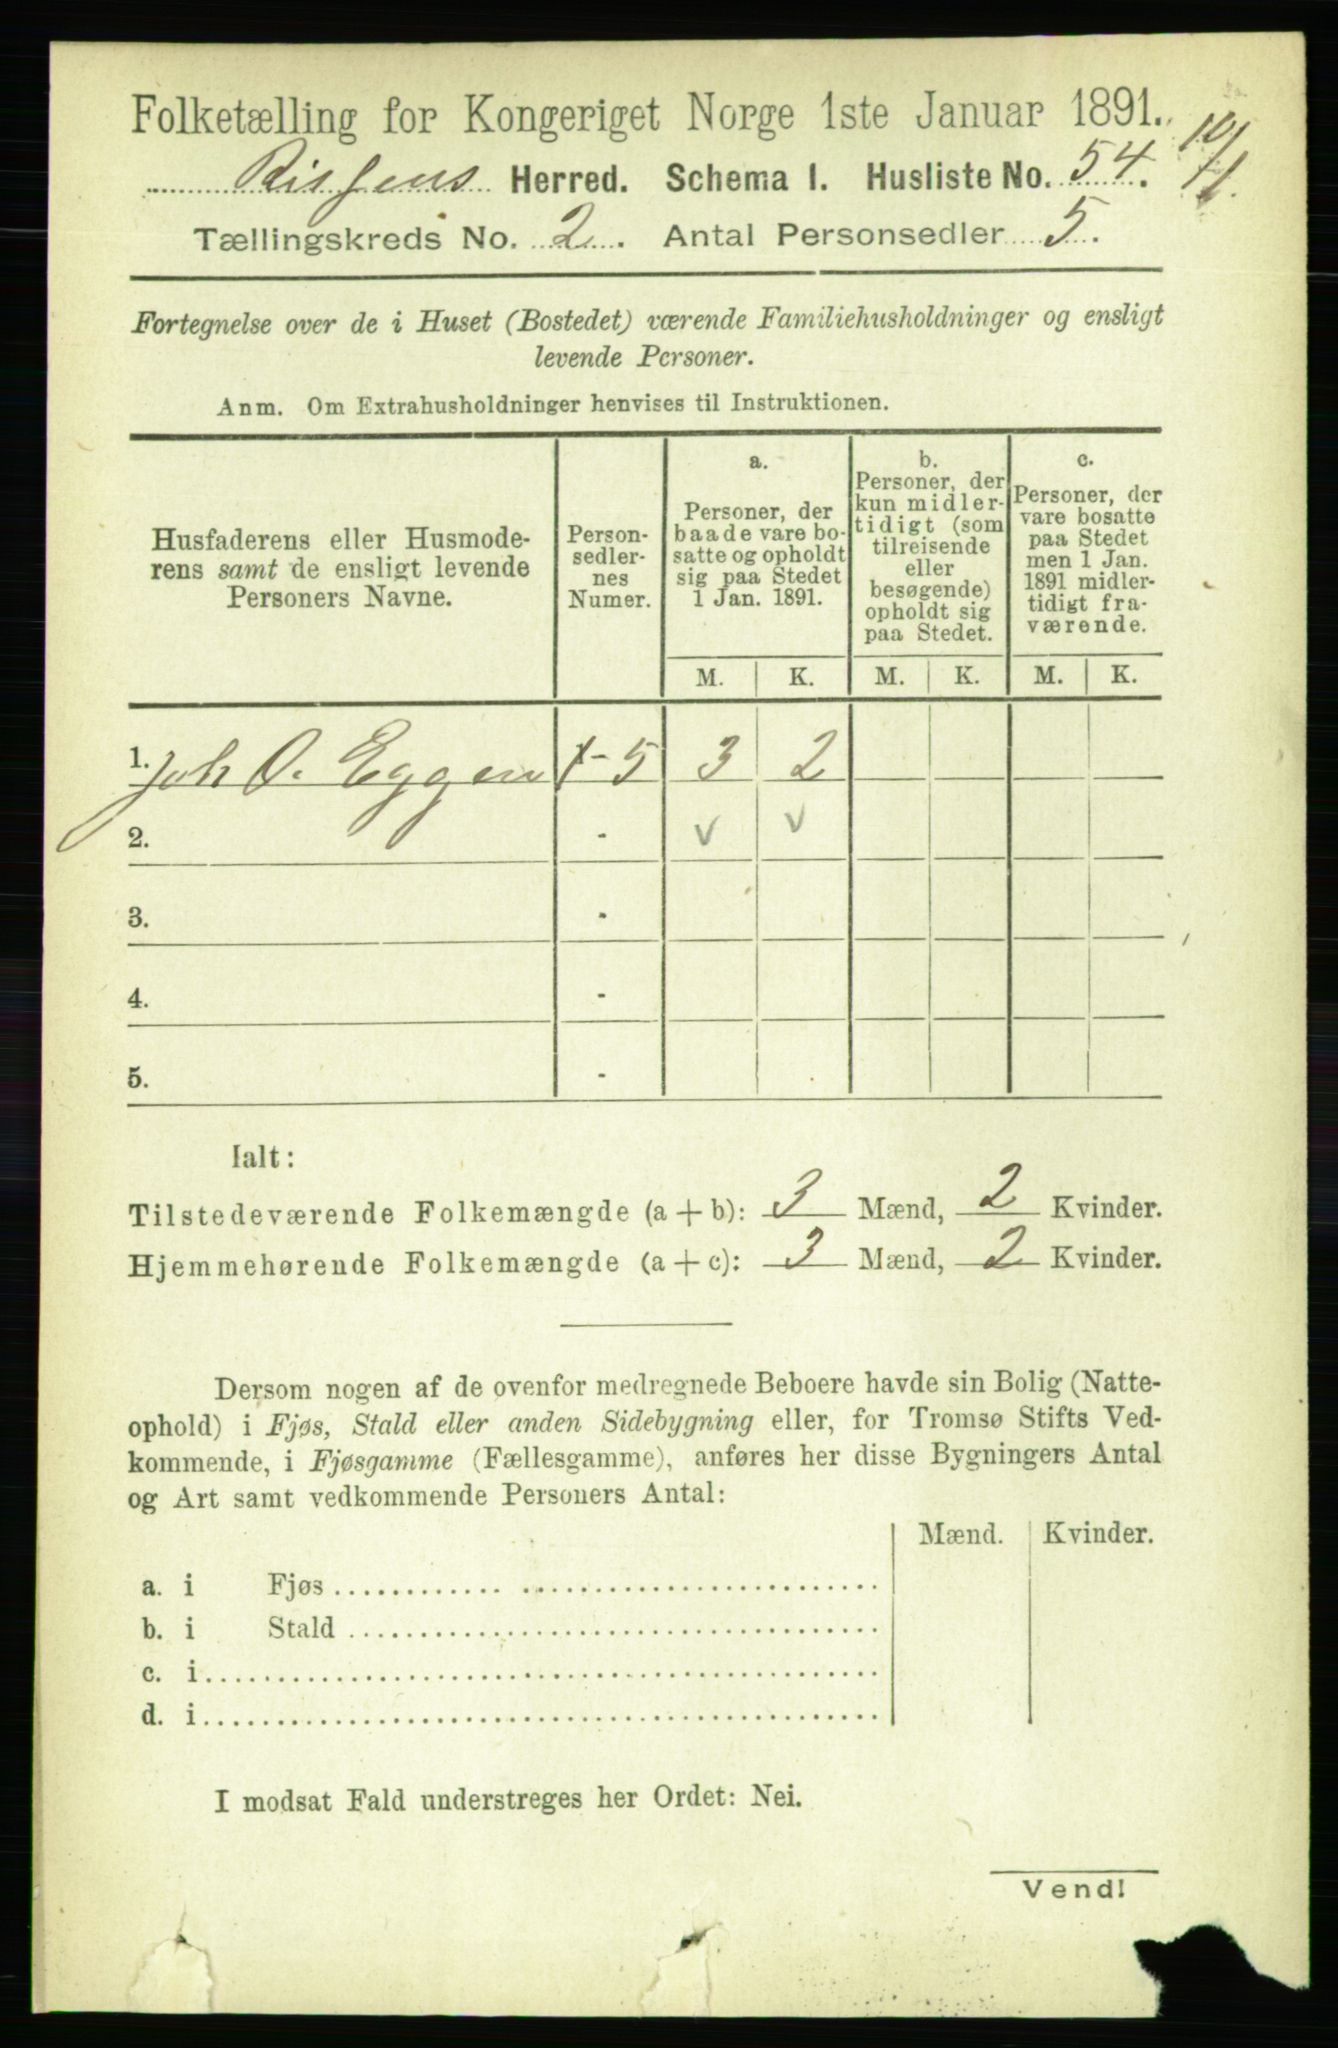 Folketælling for Kongeriget Norge 1ste Januar 1891.
10/1.
Rissens Herred. Schema 1. Husliste No. 54.
Tællingskreds No. 2. Antal Personsedler 5.
Fortegnelse over de i Huset (Bostedet) værende Familiehusholdninger og ensligt
levende Personer.
Anm. Om Extrahusholdninger henvises til Instruktionen.
Husfaderens eller Husmode-
rens samt de ensligt levende
Personers Navne.
Person-
sedler-
nes
Numer.
a.
Personer, der
baade vare bo-
satte og opholdt
sig paa Stedet
1 Jan. 1891.
b.
Personer, der
kun midler-
tidigt (som
tilreisende
eller
besøgende)
opholdt sig
paa Stedet.
c.
Personer, der
vare bosatte
paa Stedet
men 1 Jan.
1891 midler-
tidigt fra-
værende.
M. K. M. K. M. K.
1. Joh O. Eggen 1-5 3 2
2. - v v
3. -
4. -
5. -
Ialt:
Tilstedeværende Folkemængde (a + b): 3 Mænd, 2 Kvinder.
Hjemmehørende Folkemængde (a + c): 3 Mænd, 2 Kvinder.
Dersom nogen af de ovenfor medregnede Beboere havde sin Bolig (Natte-
ophold) i Fjøs, Stald eller anden Sidebygning eller, for Tromsø Stifts Ved-
kommende, i Fjøsgamme (Fællesgamme), anføres her disse Bygningers Antal
og Art samt vedkommende Personers Antal:
Mænd. Kvinder.
a. i Fjøs
b. i Stald
c. i
d. i
I modsat Fald understreges her Ordet: Nei.
Vend!